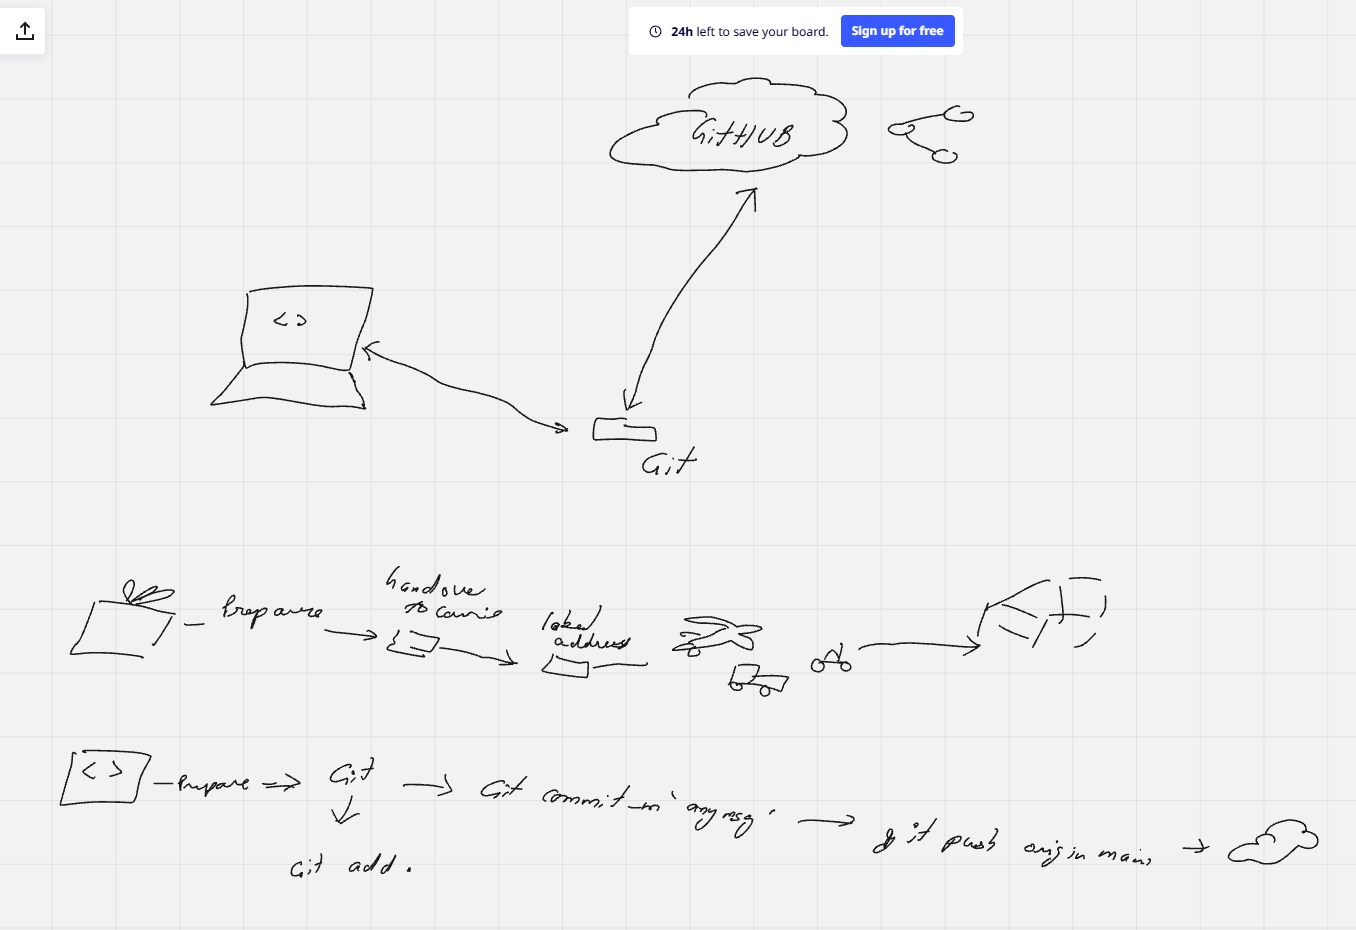 24h left to save your board.
Sign up for free
GitHUB
< >
Git
Prepare
handover
to courie
label
address
< >
Prepare
Git
Git commit -m 'any msg'
git push origin main
Git add .